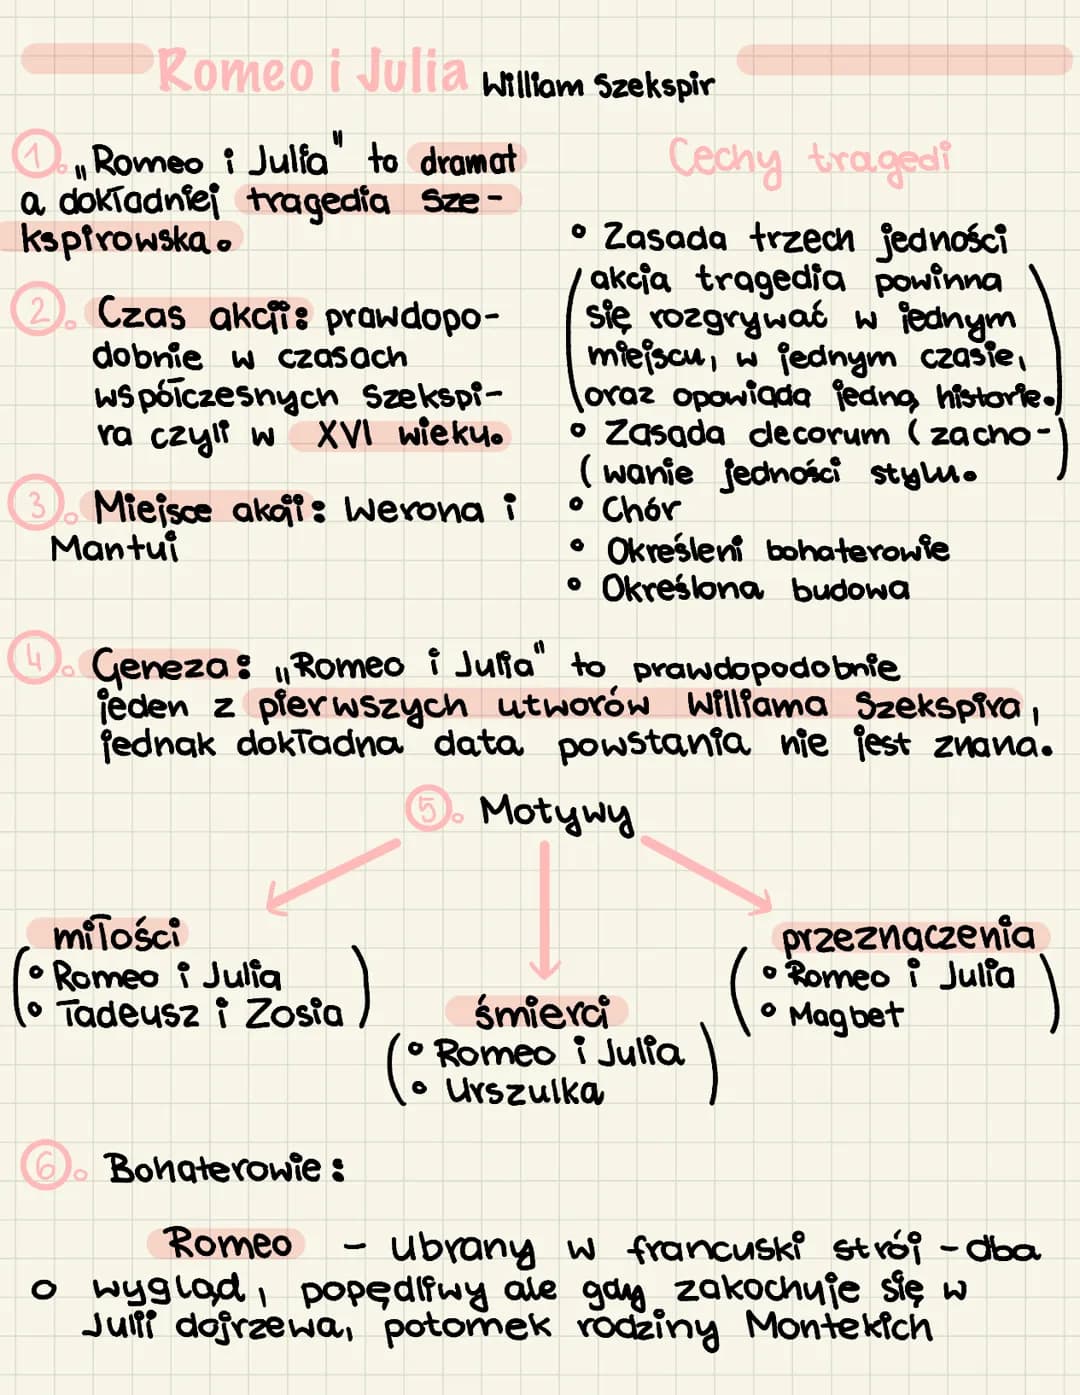 Romeo i Julia William Szekspir
1. „Romeo i Julia" to dramat
a dokładniej tragedia Sze-
kspirowska.
2. Czas akcji: prawdopo-
dobnie w czasach
współczesnych Szekspi-
ra czyli w XVI wieku.
3. Miejsce akcji: Werona i
Mantui
Cechy tragedi
• Zasada trzech jedności
(akcja tragedia powinna
się rozgrywać w jednym
miejscu, w jednym czasie,
oraz opowiada jedną historie.)
• Zasada decorum (zacho-)
(wanie jedności stylu.
• Chór
• Określeni bohaterowie
• Określona budowa
4. Geneza: „Romeo i Julia" to prawdopodobnie
jeden z pierwszych utworów Williama Szekspira,
jednak dokładna data powstania nie jest znana.
5. Motywy
miłości
(• Romeo i Julia
• Tadeusz i Zosia)
śmierci
(• Romeo i Julia
• Urszulka)
przeznaczenia
(• Romeo i Julia
• Magbet)
6. Bohaterowie:
Romeo - ubrany w francuski strój - dba
o wygląd, popędliwy ale gdy zakochuje się w
Julii dojrzewa, potomek rodziny Montekich